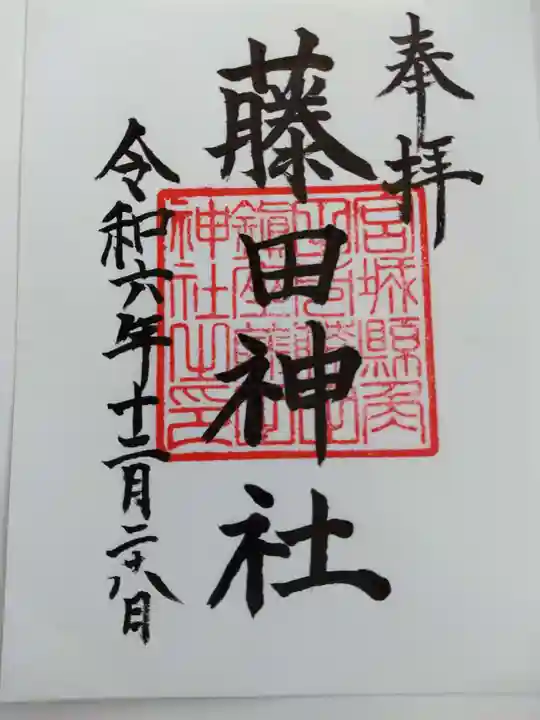 奉拝
藤田神社
令和六年十二月二十八日
宮城縣
神社之印